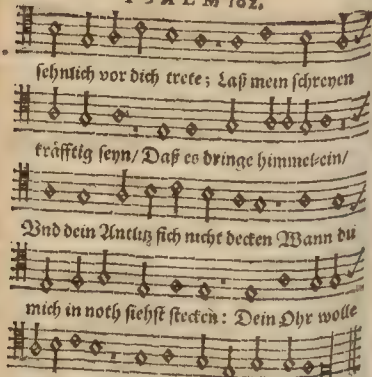 PSALM 102.
sehnlich vor dich trete; Laß mein schreyen
kräfftig seyn/ Daß es dringe himmel-ein/
Vnd dein Antlitz sich nicht decken Wann du
mich in noth siehst stecken: Dein Ohr wolle